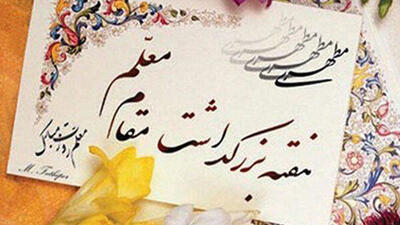 مطهری مطهری مطهری مطهری
هفته بزرگداشت مقام معلّم
معلم روزت مبارک
M. Fathipor